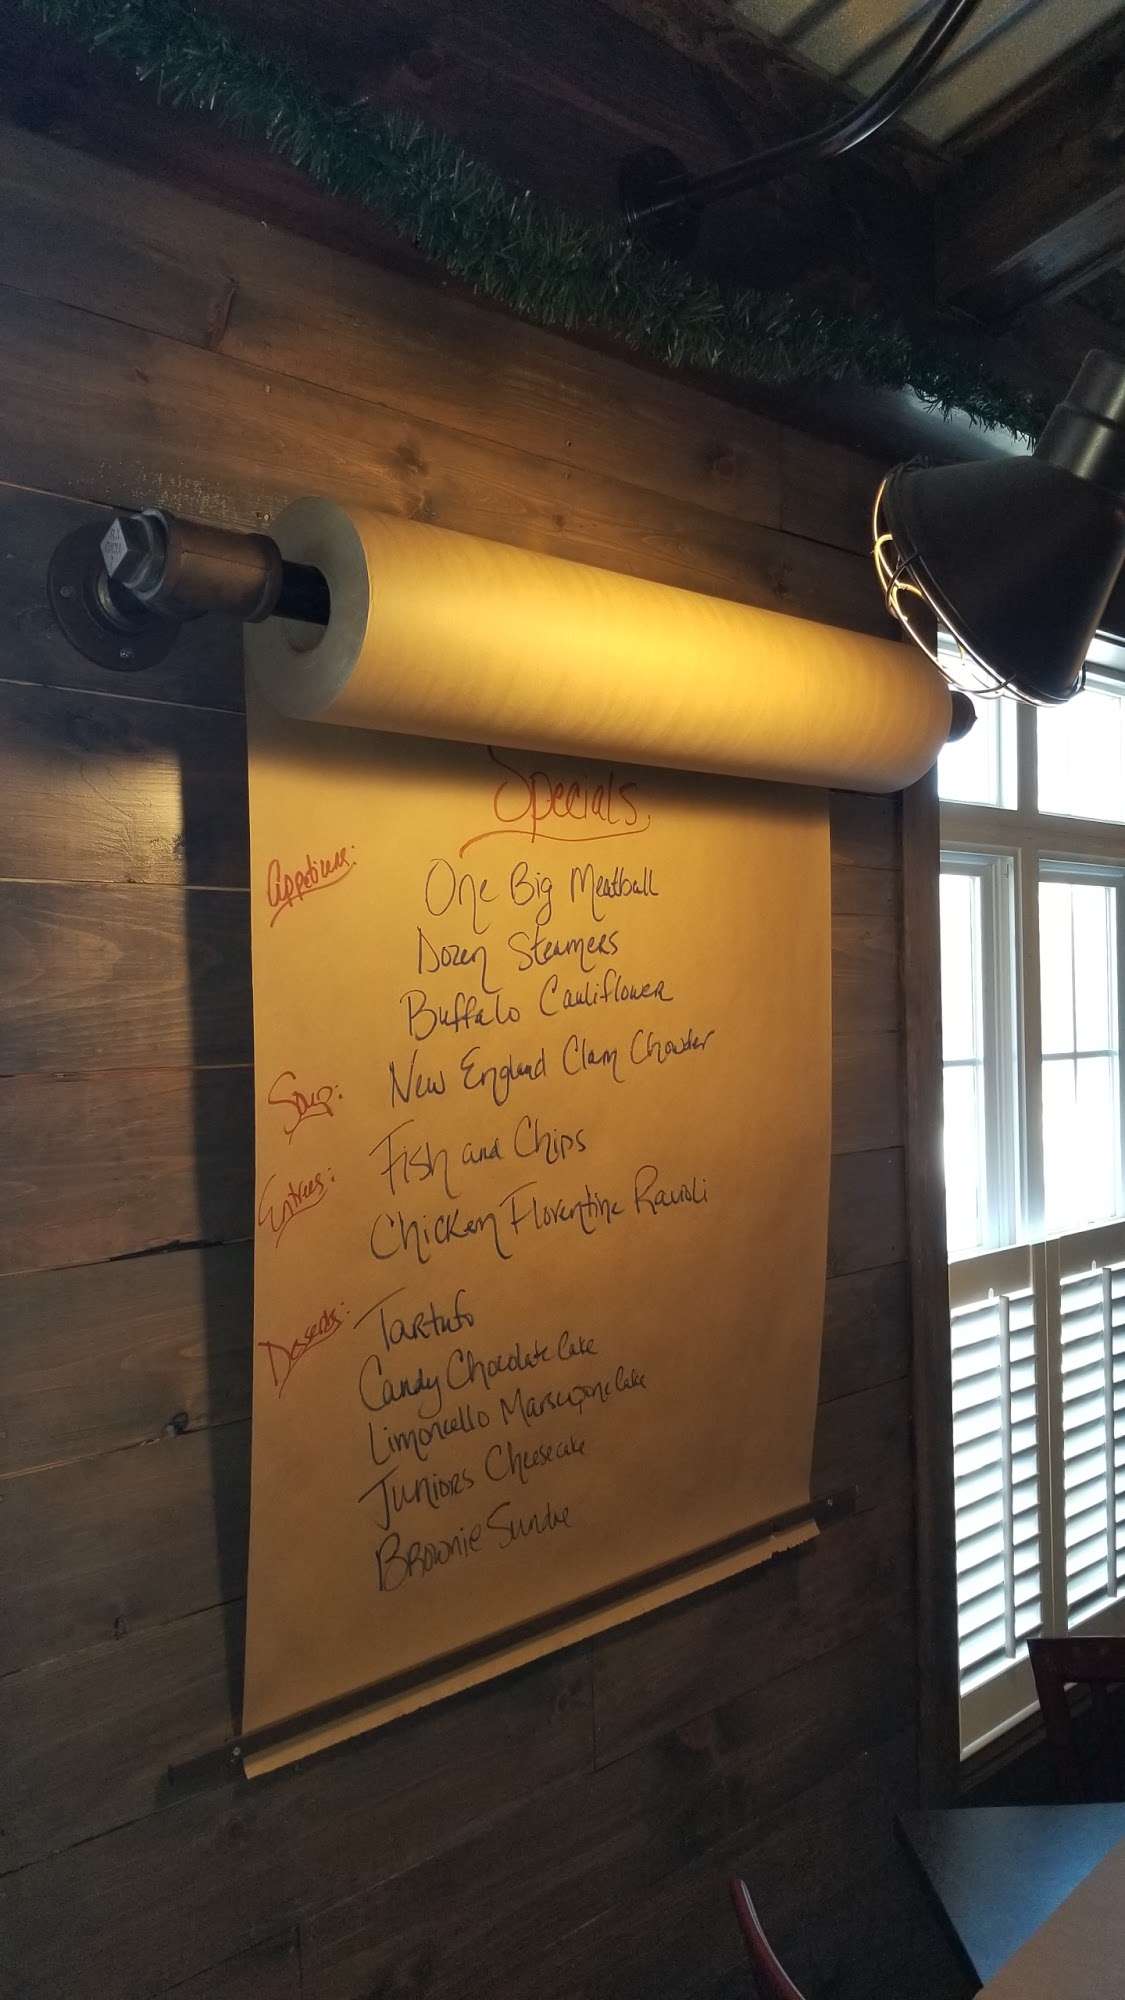 Specials
Appetizers:
One Big Meatball
Dozen Steamers
Buffalo Cauliflower
Soup: New England Clam Chowder
Entrees: Fish and Chips
Chicken Florentine Ravioli
Desserts: Tartufo
Candy Chocolate Cake
Limoncello Marscapone Cake
Juniors Cheesecake
Brownie Sundae